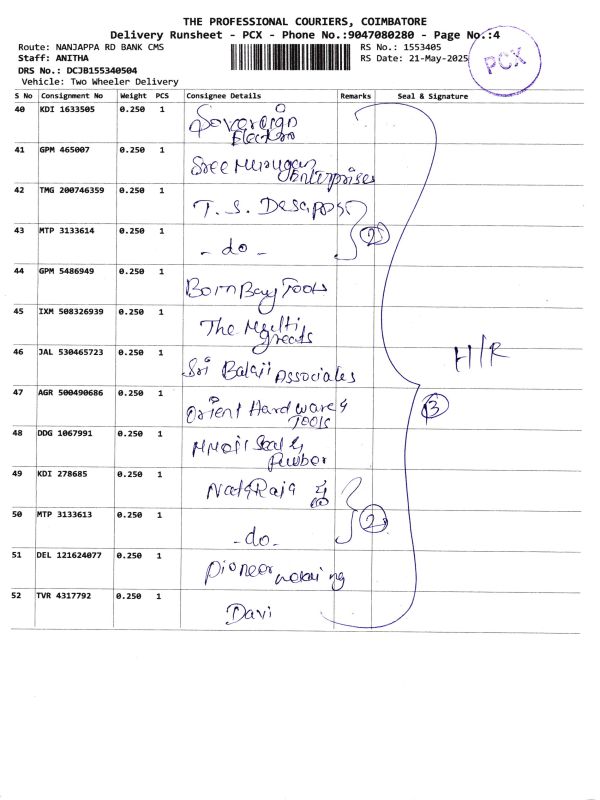 THE PROFESSIONAL COURIERS, COIMBATORE
Delivery Runsheet - PCX - Phone No.:9047080280 - Page No.:4
Route: NANJAPPA RD BANK CMS
RS No.: 1553405
Staff: ANITHA
RS Date: 21-May-2025
DRS No.: DCJB155340504
Vehicle: Two Wheeler Delivery
PCX
S No Consignment No Weight PCS Consignee Details Remarks Seal & Signature
40 KDI 1633505 0.250 1 Sovereign
Electro
41 GPM 465007 0.250 1 Sree Murugan
Enterprises
42 TMG 200746359 0.250 1 T. S.
43 MTP 3133614 0.250 1 - do - 2
44 GPM 5486949 0.250 1 Bombay Tools
45 IXM 508326939 0.250 1 The
46 JAL 530465723 0.250 1 Sri Balaji Associates
H/R
47 AGR 500490686 0.250 1 Orient Hardware &
Tools
13
48 DDG 1067991 0.250 1 Seal &
49 KDI 278685 0.250 1 Nataraja &
50 MTP 3133613 0.250 1 - do - 2
51 DEL 121624077 0.250 1 Pioneer
52 TVR 4317792 0.250 1 Davi